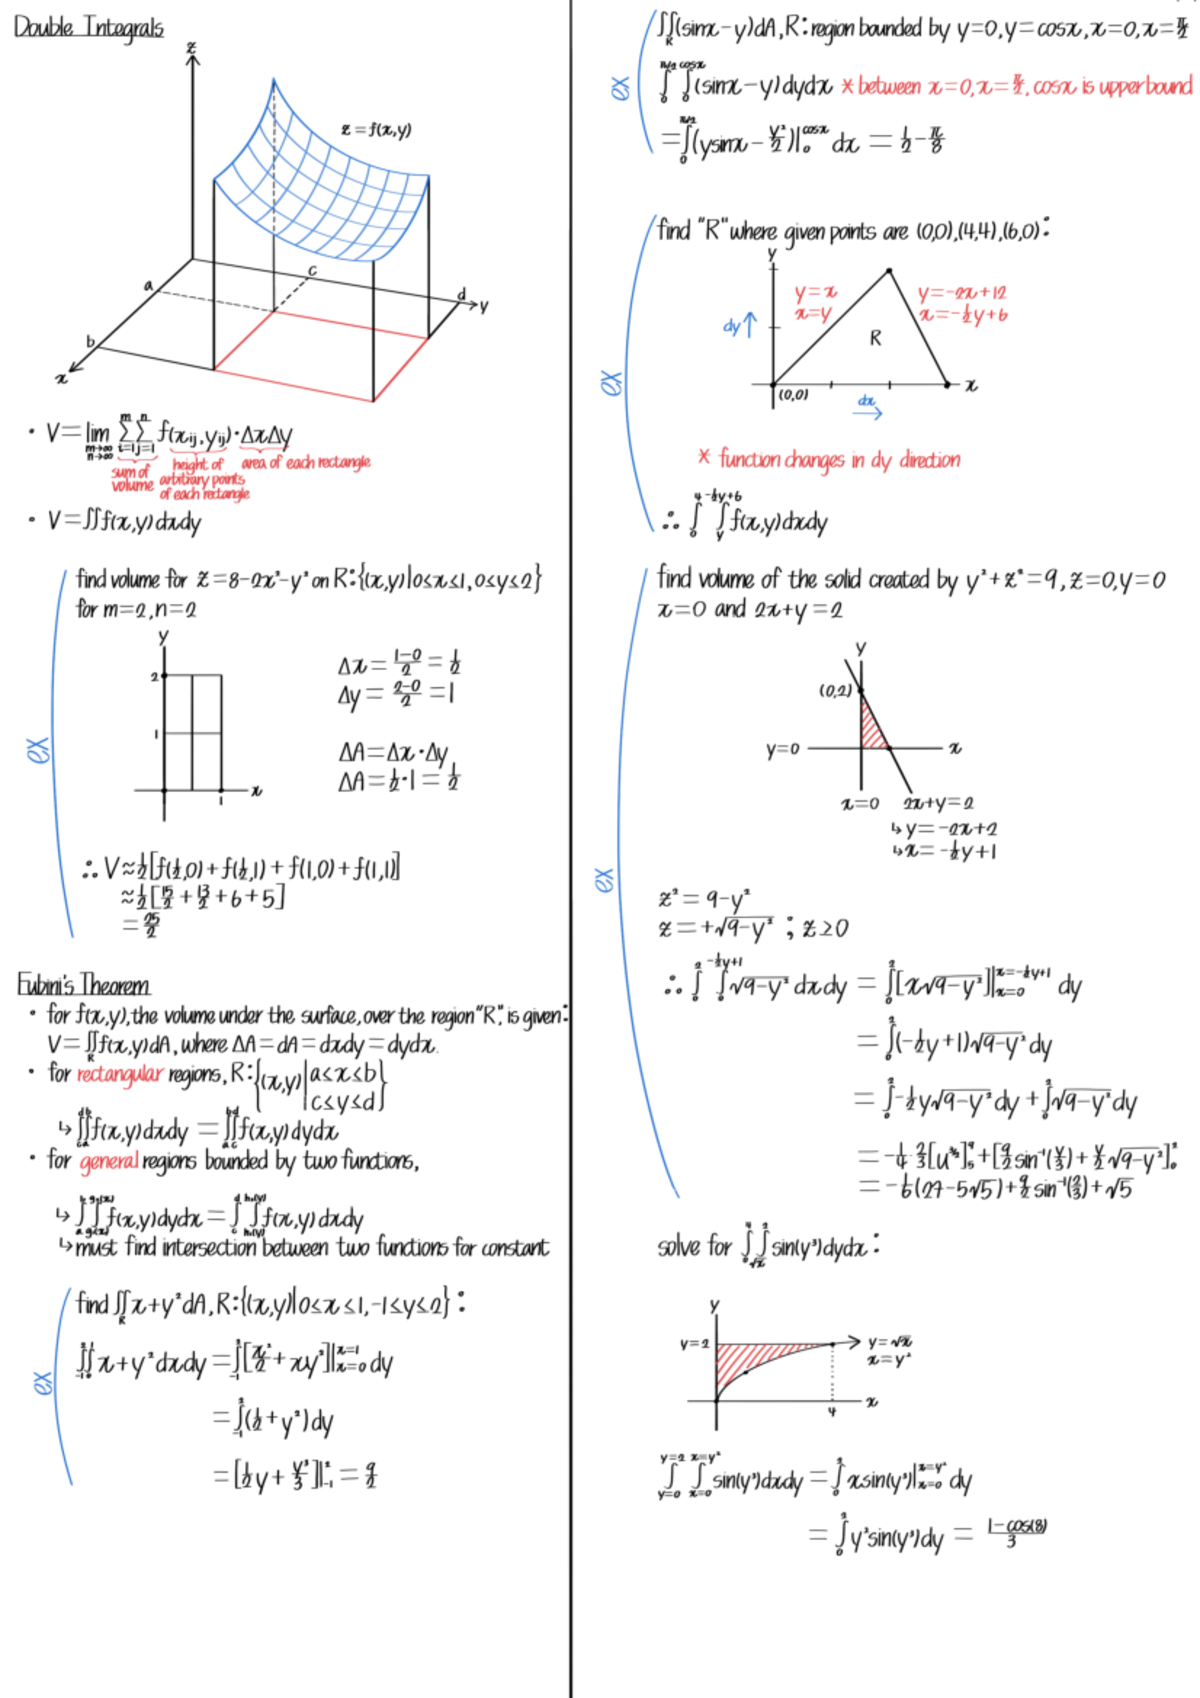 Double Integrals
z
z = f(x,y)
c
a
d
y
b
x
• V = lim m→∞ n→∞ Σ i=1 m Σ j=1 n f(xij, yij) · ΔxΔy
sum of volume
height of arbitrary points of each rectangle
area of each rectangle
• V = ∬f(x,y)dxdy
ex
find volume for z = 8-2x²-y² on R:{(x,y)|0≤x≤1, 0≤y≤2}
for m=2, n=2
y
2
1
x
1
Δx = (1-0)/2 = 1/2
Δy = (2-0)/2 = 1
ΔA = Δx · Δy
ΔA = 1/2 · 1 = 1/2
∴ V ≈ 1/2[f(1/2,0) + f(1/2,1) + f(1,0) + f(1,1)]
≈ 1/2[15/2 + 13/2 + 6 + 5]
= 25/2
Fubini's Theorem
• for f(x,y), the volume under the surface, over the region "R", is given:
V = ∬R f(x,y)dA, where ΔA = dA = dxdy = dydx.
• for rectangular regions, R:{(x,y)| a≤x≤b
c≤y≤d}
↳ ∫c^d ∫a^b f(x,y)dxdy = ∫a^b ∫c^d f(x,y)dydx
• for general regions bounded by two functions,
↳ ∫a^b ∫g₁(x)^g₂(x) f(x,y)dydx = ∫c^d ∫h₁(y)^h₂(y) f(x,y)dxdy
↳ must find intersection between two functions for constant
ex
find ∬R x+y²dA, R:{(x,y)|0≤x≤1, -1≤y≤2} :
∫-1^2 ∫0^1 x+y²dxdy = ∫-1^2 [x²/2 + xy²]|x=0^x=1 dy
= ∫-1^2 (1/2 + y²)dy
= [1/2y + y³/3]|-1^2 = 9/2
ex
∬R (sinx-y)dA, R: region bounded by y=0, y=cosx, x=0, x=π/2
∫0^π/2 ∫0^cosx (sinx-y)dydx * between x=0, x=π/2, cosx is upperbound
= ∫0^π/2 (ysinx - y²/2)|0^cosx dx = 1/2 - π/8
ex
find "R" where given points are (0,0), (4,4), (6,0) :
y
y=x
x=y
y=-2x+12
x=-1/2y+6
dy ↑
R
(0,0)
x
dx →
* function changes in dy direction
∴ ∫0^4 ∫y^-1/2y+6 f(x,y)dxdy
ex
find volume of the solid created by y²+z²=9, z=0, y=0
x=0 and 2x+y=2
y
(0,2)
y=0
x
x=0
2x+y=2
↳ y=-2x+2
↳ x=-1/2y+1
z² = 9-y²
z = +√9-y² ; z≥0
∴ ∫0^2 ∫0^-1/2y+1 √9-y² dxdy = ∫0^2 [x√9-y²]|x=0^x=-1/2y+1 dy
= ∫0^2 (-1/2y+1)√9-y² dy
= ∫0^2 -1/2y√9-y² dy + ∫0^2 √9-y² dy
= -1/4 · 2/3[u^3/2]5^9 + [9/2 sin⁻¹(y/3) + y/2 √9-y²]0^2
= -1/6(27-5√5) + 9/2 sin⁻¹(2/3) + √5
solve for ∫0^4 ∫√x^2 sin(y³)dydx :
y
y=2
y=√x
x=y²
x
4
∫y=0^y=2 ∫x=0^x=y² sin(y³)dxdy = ∫0^2 xsin(y³)|x=0^x=y² dy
= ∫0^2 y²sin(y³)dy = (1-cos(8))/3